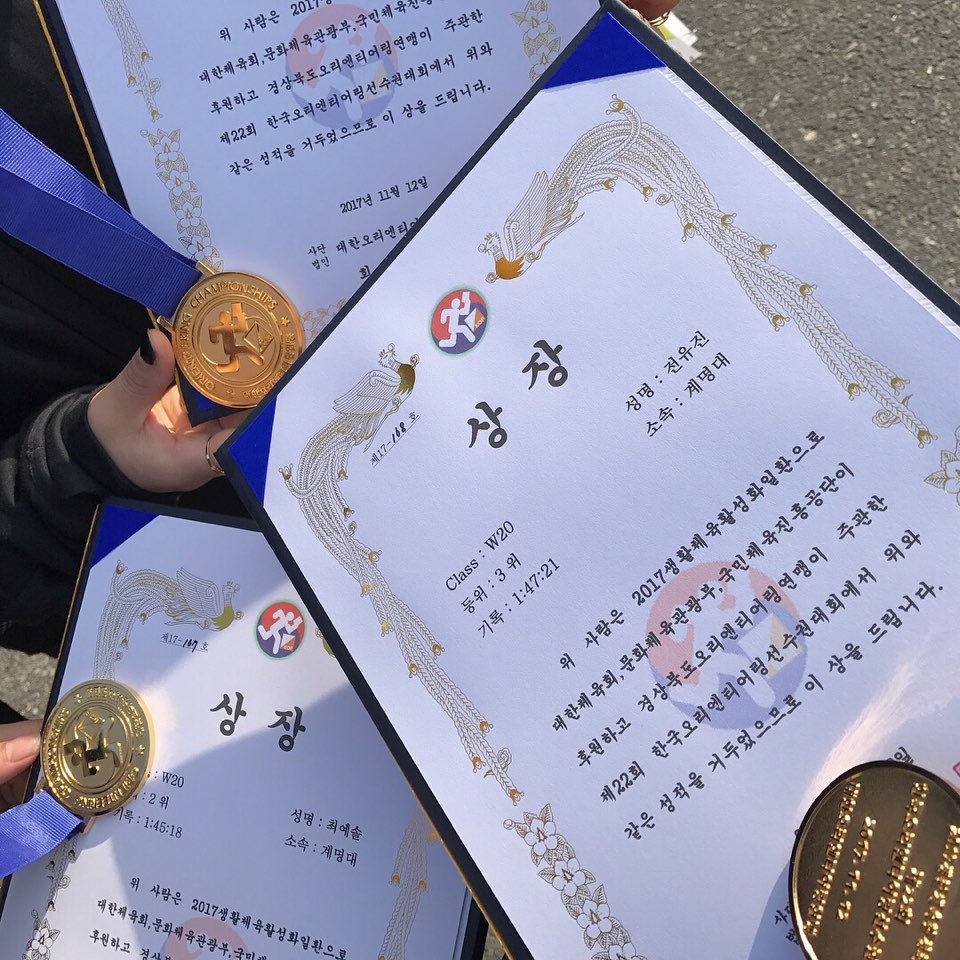 위 사람은 2017생
대한체육회,문화체육관광부,국민체육진
후원하고 경상북도오리엔티어링연맹이 주관한
제22회 한국오리엔티어링선수권대회에서 위와
같은 성적을 거두었으므로 이 상을 드립니다.
2017년 11월 12일
사단
법인 대한오리엔티어
회
CHAMPIONSHIPS
제17-168 호
상 장
성명 : 전유진
소속 : 계명대
Class : W20
등위 : 3 위
기록 : 1:47:21
위 사람은 2017생활체육활성화일환으로
대한체육회,문화체육관광부,국민체육진흥공단이
후원하고 경상북도오리엔티어링연맹이 주관한
제22회 한국오리엔티어링선수권대회에서 위와
같은 성적을 거두었으므로 이 상을 드립니다.
일
제17-167 호
상 장
W20
2 위
기록 : 1:45:18
성명 : 최예솔
소속 : 계명대
위 사람은 2017생활체육활성화일환으로
대한체육회,문화체육관광부,국민체
후원하고 경상
2017. 11. 12